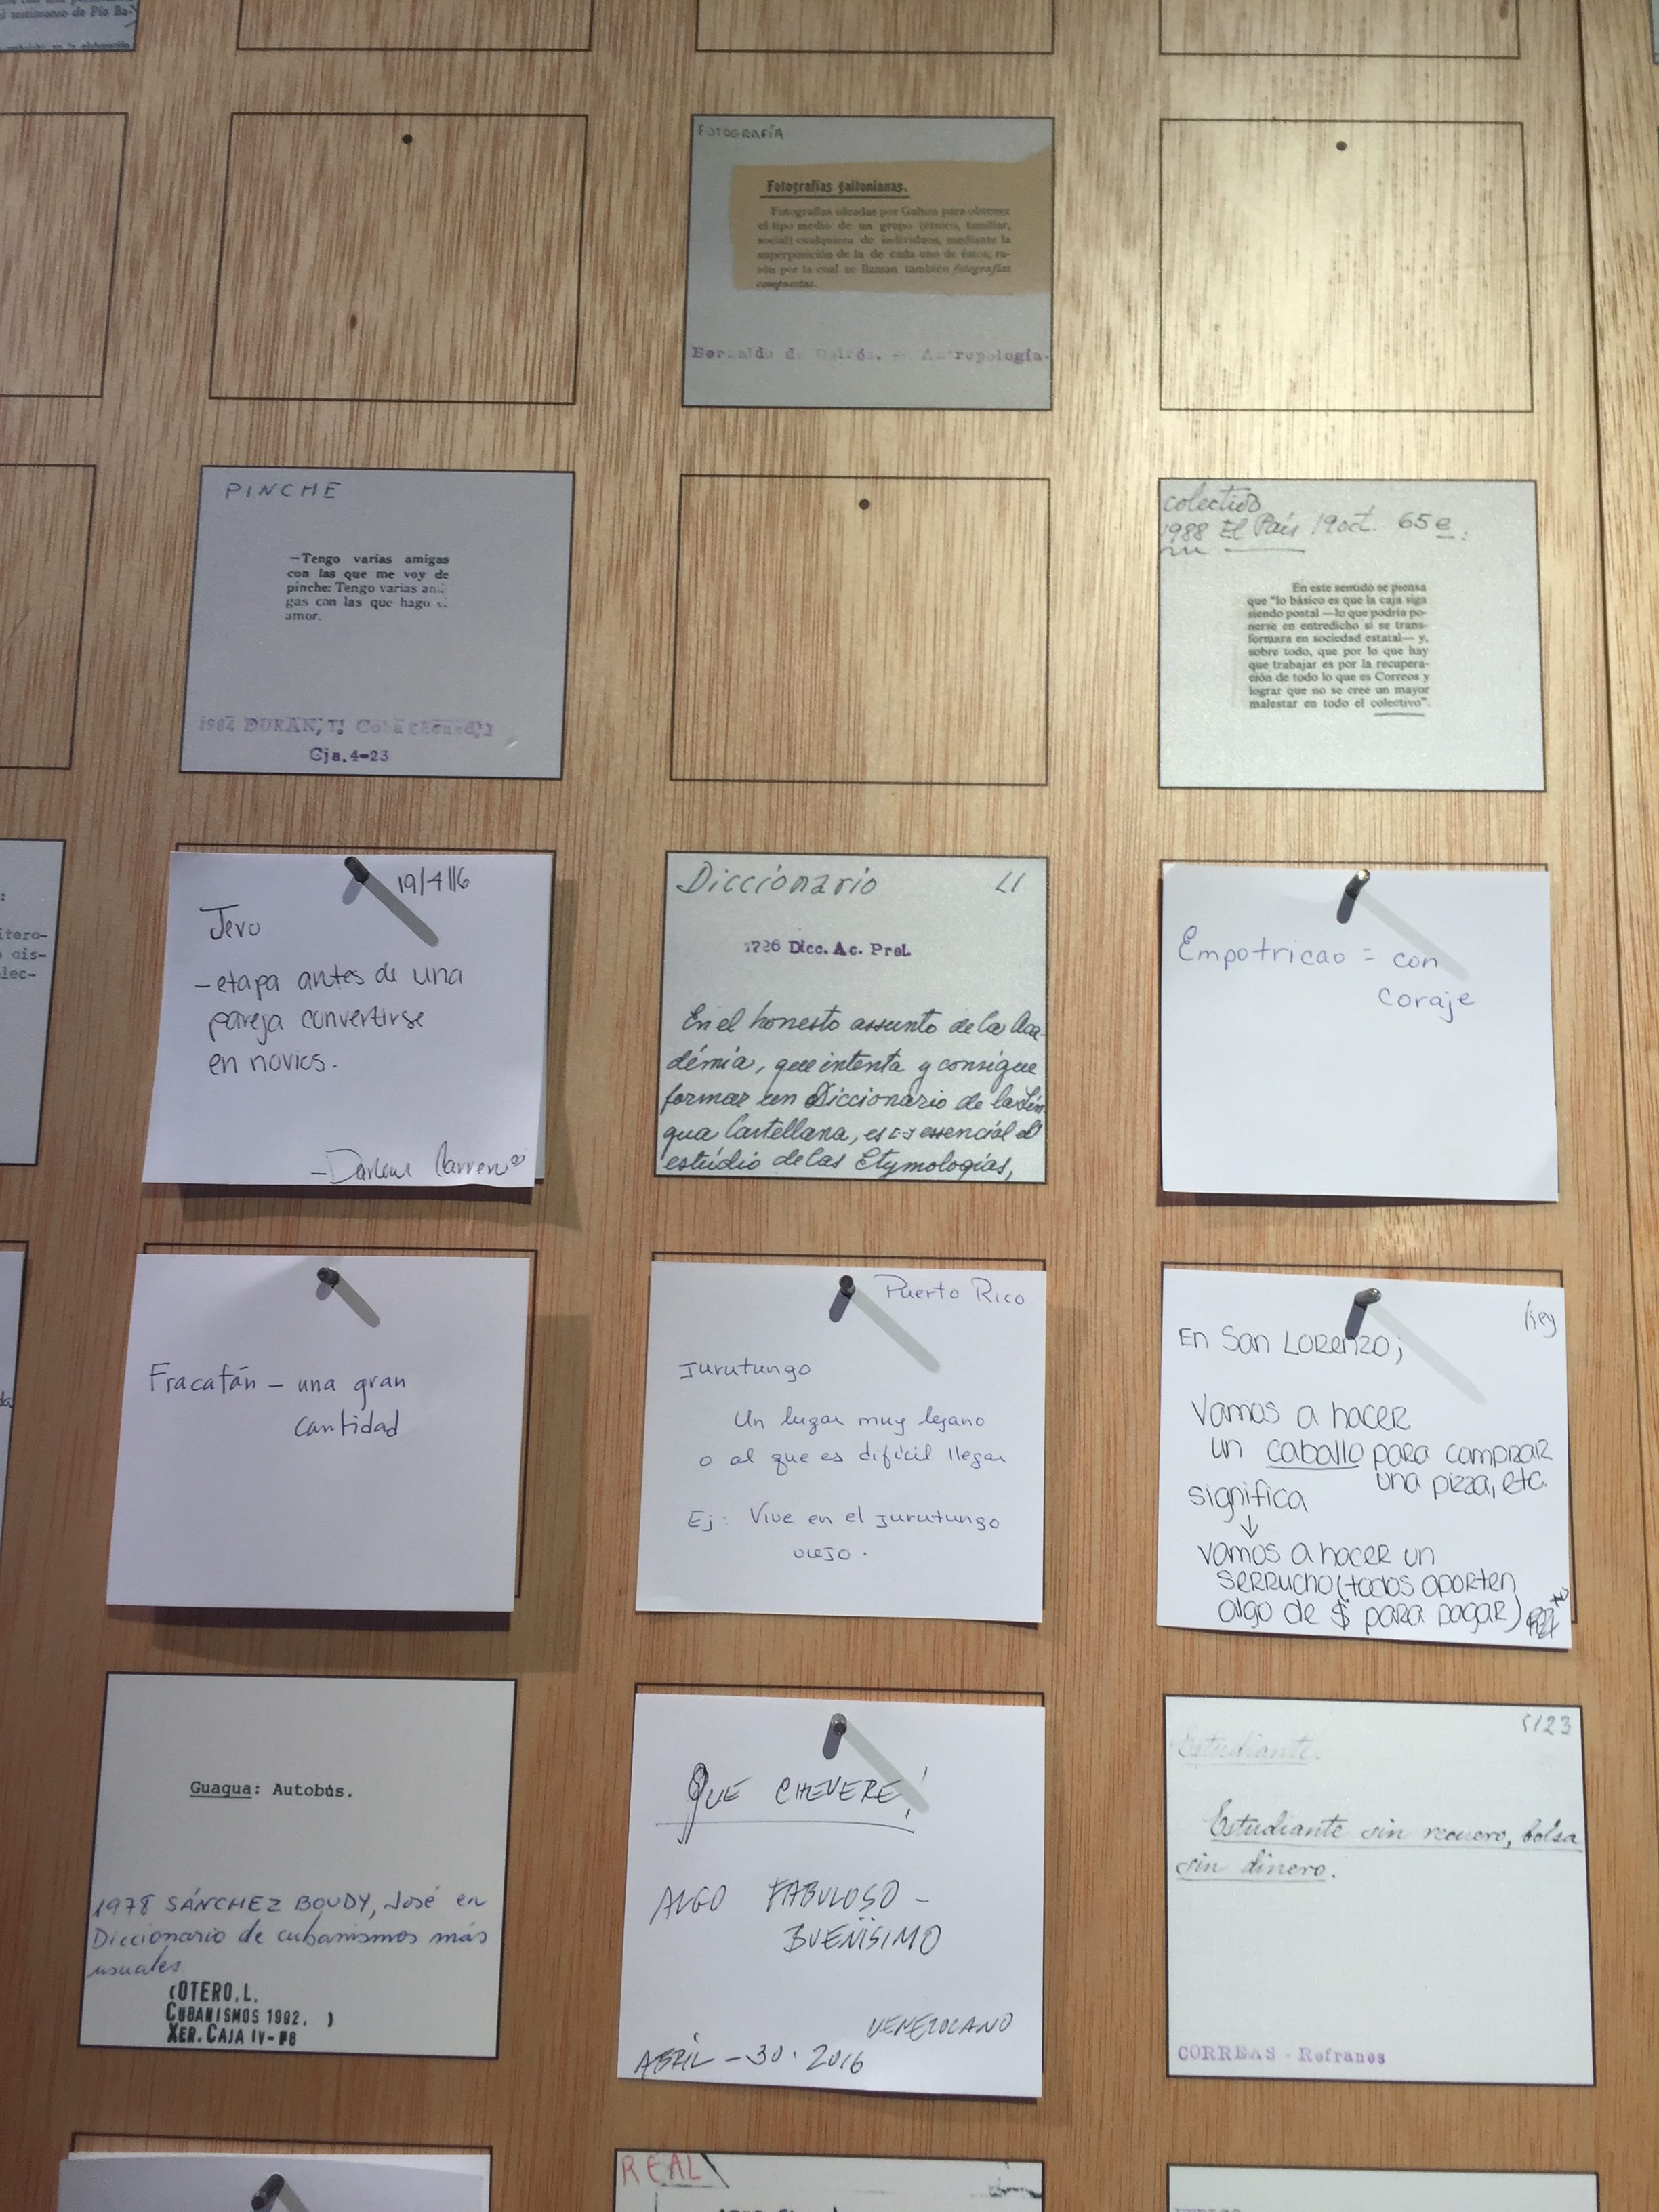 al testimonio de Pío Ba-
FOTOGRAFÍA
Fotografías galtonianas.
Fotografías ideadas por Galton para obtener
el tipo medio de un grupo (étnico, familiar,
social) cualquiera de individuos, mediante la
superposición de la de cada uno de éstos; ra-
zón por la cual se llaman también fotografías
compuestas.
Bernaldo de Quirós. - Antropología.
PINCHE
—Tengo varias amigas
con las que me voy de
pinche: Tengo varias ami-
gas con las que hago el
amor.
DURAN, T:
Cja. 4-23
colectivo
1988 El País 19 oct. 65 e:
En este sentido se piensa
que "lo básico es que la caja siga
siendo postal —lo que podría po-
nerse en entredicho si se trans-
formara en sociedad estatal— y,
sobre todo, que por lo que hay
que trabajar es por la recupera-
ción de todo lo que es Correos y
lograr que no se cree un mayor
malestar en todo el colectivo".
itera-
ois-
lec-
19/4/16
Jevo
- etapa antes de una
pareja convertirse
en novios.
- Darlene
Diccionario LI
1726 Dicc. Ac. Prel.
En el honesto assunto de la Aca
démia, que intenta y consigue
formar un Diccionario de la Len
gua Castellana, es essencial el
estúdio de las Etymologías,
Empotricao = con
coraje
Fracatán - una gran
cantidad
Puerto Rico
Jurutungo
Un lugar muy lejano
o al que es difícil llegar
Ej: Vive en el jurutungo
viejo.
Key
En San Lorenzo;
Vamos a hacer
un caballo para comprar
una pizza, etc.
significa
↓
vamos a hacer un
serrucho (todos aporten
algo de $ para pagar)
Guagua: Autobús.
1978 SÁNCHEZ BOUDY, José en
Diccionario de cubanismos más
usuales
(OTERO, L.
CUBANISMOS 1992. )
XER. CAJA IV-F8
QUE CHEVERE!
ALGO FABULOSO -
BUENÍSIMO
VENEZOLANO
ABRIL - 30 . 2016
5123
Estudiante.
Estudiante sin recuero, bolsa
sin dinero.
CORREAS - Refranes
REAL